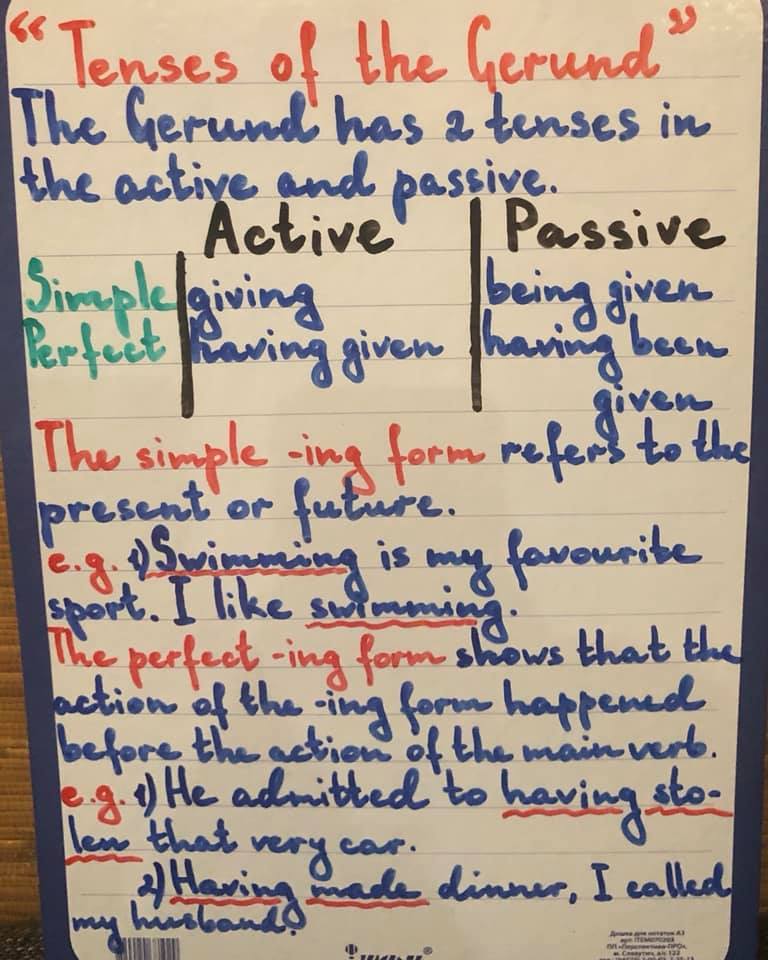 “Tenses of the Gerund”
The Gerund has 2 tenses in
the active and passive.
Active Passive
Simple giving being given
Perfect having given having been
given
The simple -ing form refers to the
present or future.
e.g. 1) Swimming is my favourite
sport. I like swimming.
The perfect -ing form shows that the
action of the -ing form happened
before the action of the main verb.
e.g. 1) He admitted to having sto-
len that very car.
2) Having made dinner, I called
my husband.
Дошка для нотаток А3